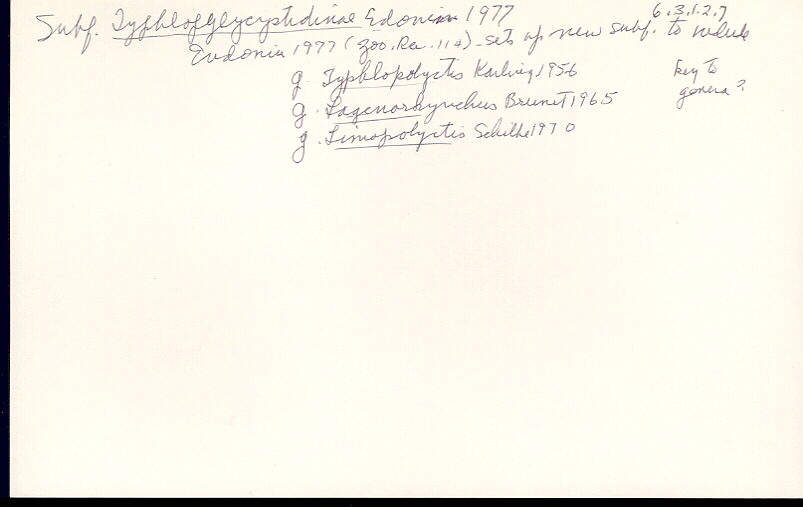 Subf. Typhlopolycystidinae Edonin 1977 6.3.1.2.7
Evdonin 1977 (Zoo. Rec. 114) - sets up new subf. to include
g. Typhlopolycystis Karling 1956 key to
g. Lagenorhynchus Brunet 1965 genera?
g. Limipolycystis Schilke 1970